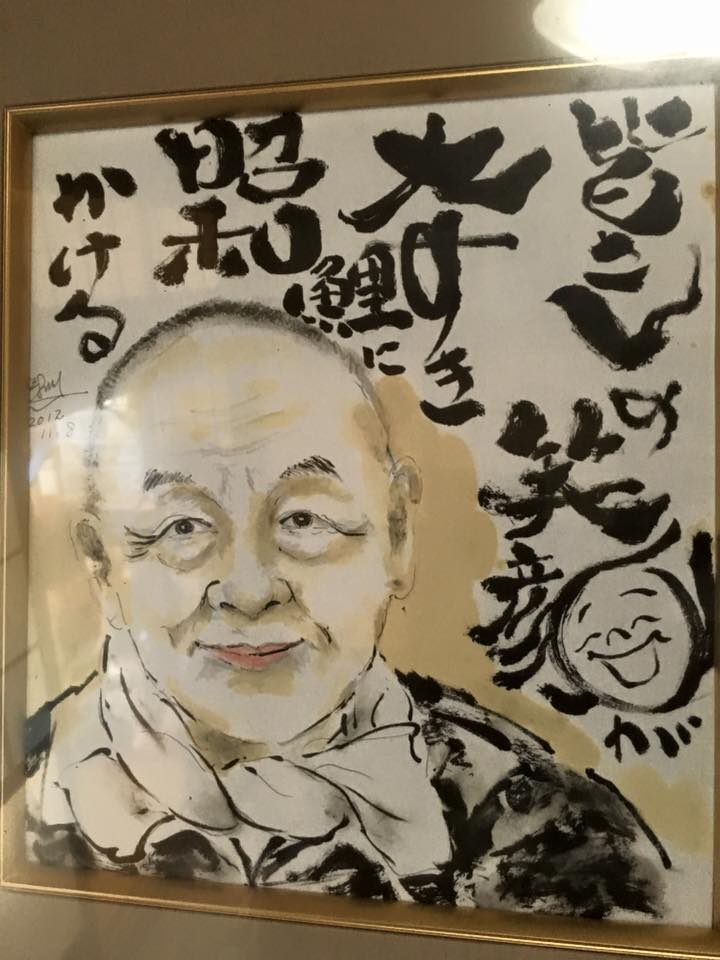 皆さんの
笑顔が
大すき
鯉に
昭和
かける
2012.
11.8